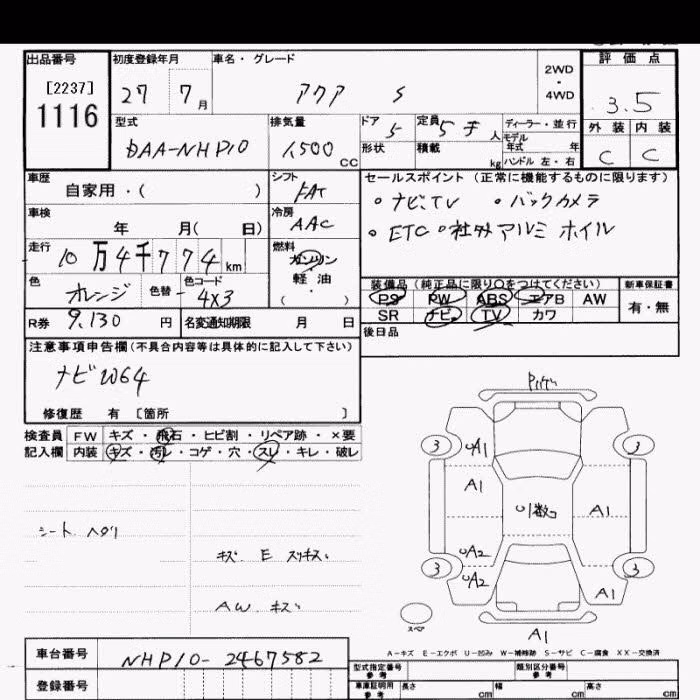 出品番号 初度登録年月 車名・グレード 2WD ・ 4WD 評価点
[2237] 1116 27 7月 アクア S 3.5
外装 内装
C C
型式 排気量 ドア 定員 ディーラー・並行
DAA-NHP10 1500cc 5 5 人 モデル年式 年
形状 積載 kg ハンドル 左・右
車歴 シフト セールスポイント (正常に機能するものに限ります)
自家用・( ) FAT ・ナビ.TV ・バックカメラ
車検 冷房 ・ETC ・社外アルミホイル
年 月( 日) AAC
走行 燃料
10万4千774km ガソリン 軽油・( )
色 色替 色コード 装備品(純正品に限り○をつけてください) 新車保証書
オレンジ - 4X3 PS PW ABS エアB AW 有・無
R券 9,130円 名変通知期限 月 日 SR ナビ TV カワ
注意事項申告欄(不具合内容等は具体的に記入して下さい) 後日品
ナビW64
修復歴 有 [箇所 ]
検査員記入欄 FW キズ・飛石・ヒビ割・リペア跡・×要
内装 キズ・汚レ・コゲ・穴・スレ・キレ・破レ
3 A1 3
A1 A1
U数コ
シート ヘタリ
キズ E スリキズ
3 UA2 3
UA2 A1
AW キズ
スペア
A1
A-キズ E-エクボ U-凹み W-補修跡 S-サビ C-腐食 XX-交換済
車台番号 NHP10-2467582
型式指定番号 参考 類別区分番号 参考
登録番号 車庫証明用 参考 長さ cm 幅 cm 高さ cm